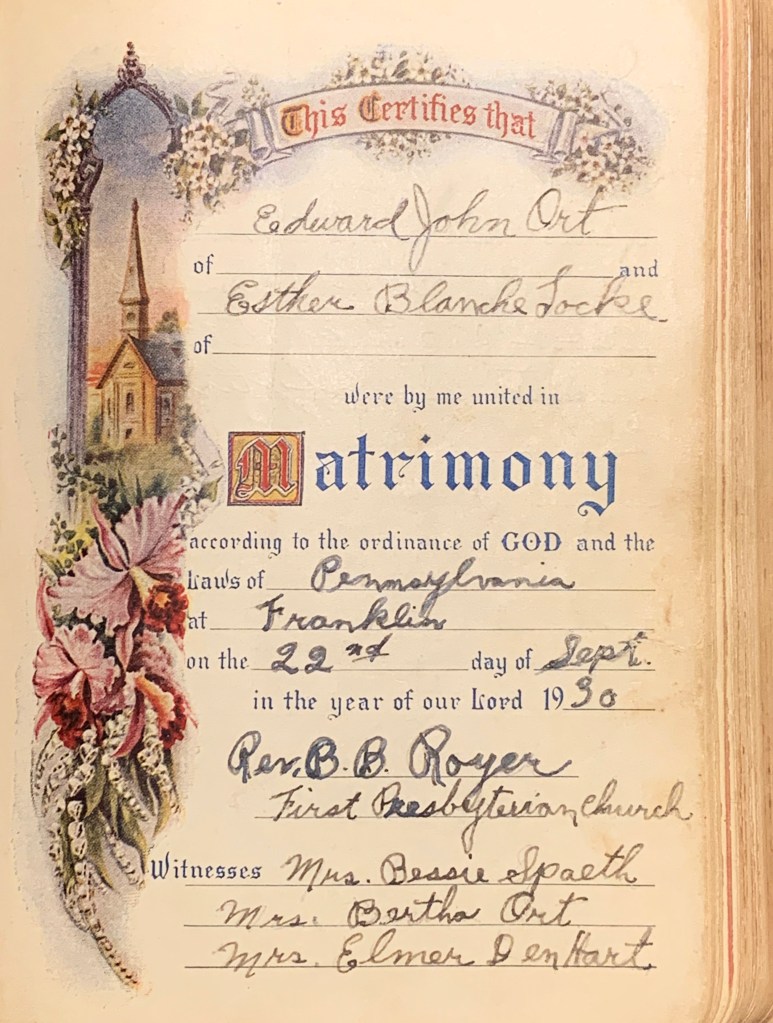 This Certifies that
Edward John Ort
of and
Esther Blanche Locke
of
were by me united in
Matrimony
according to the ordinance of GOD and the
Laws of Pennsylvania
at Franklin
on the 22nd day of Sept.
in the year of our Lord 1930
Rev. B. B. Royer
First Presbyterian Church
Witnesses Mrs. Bessie Spaeth
Mrs. Bertha Ort
Mrs. Elmer DenHart